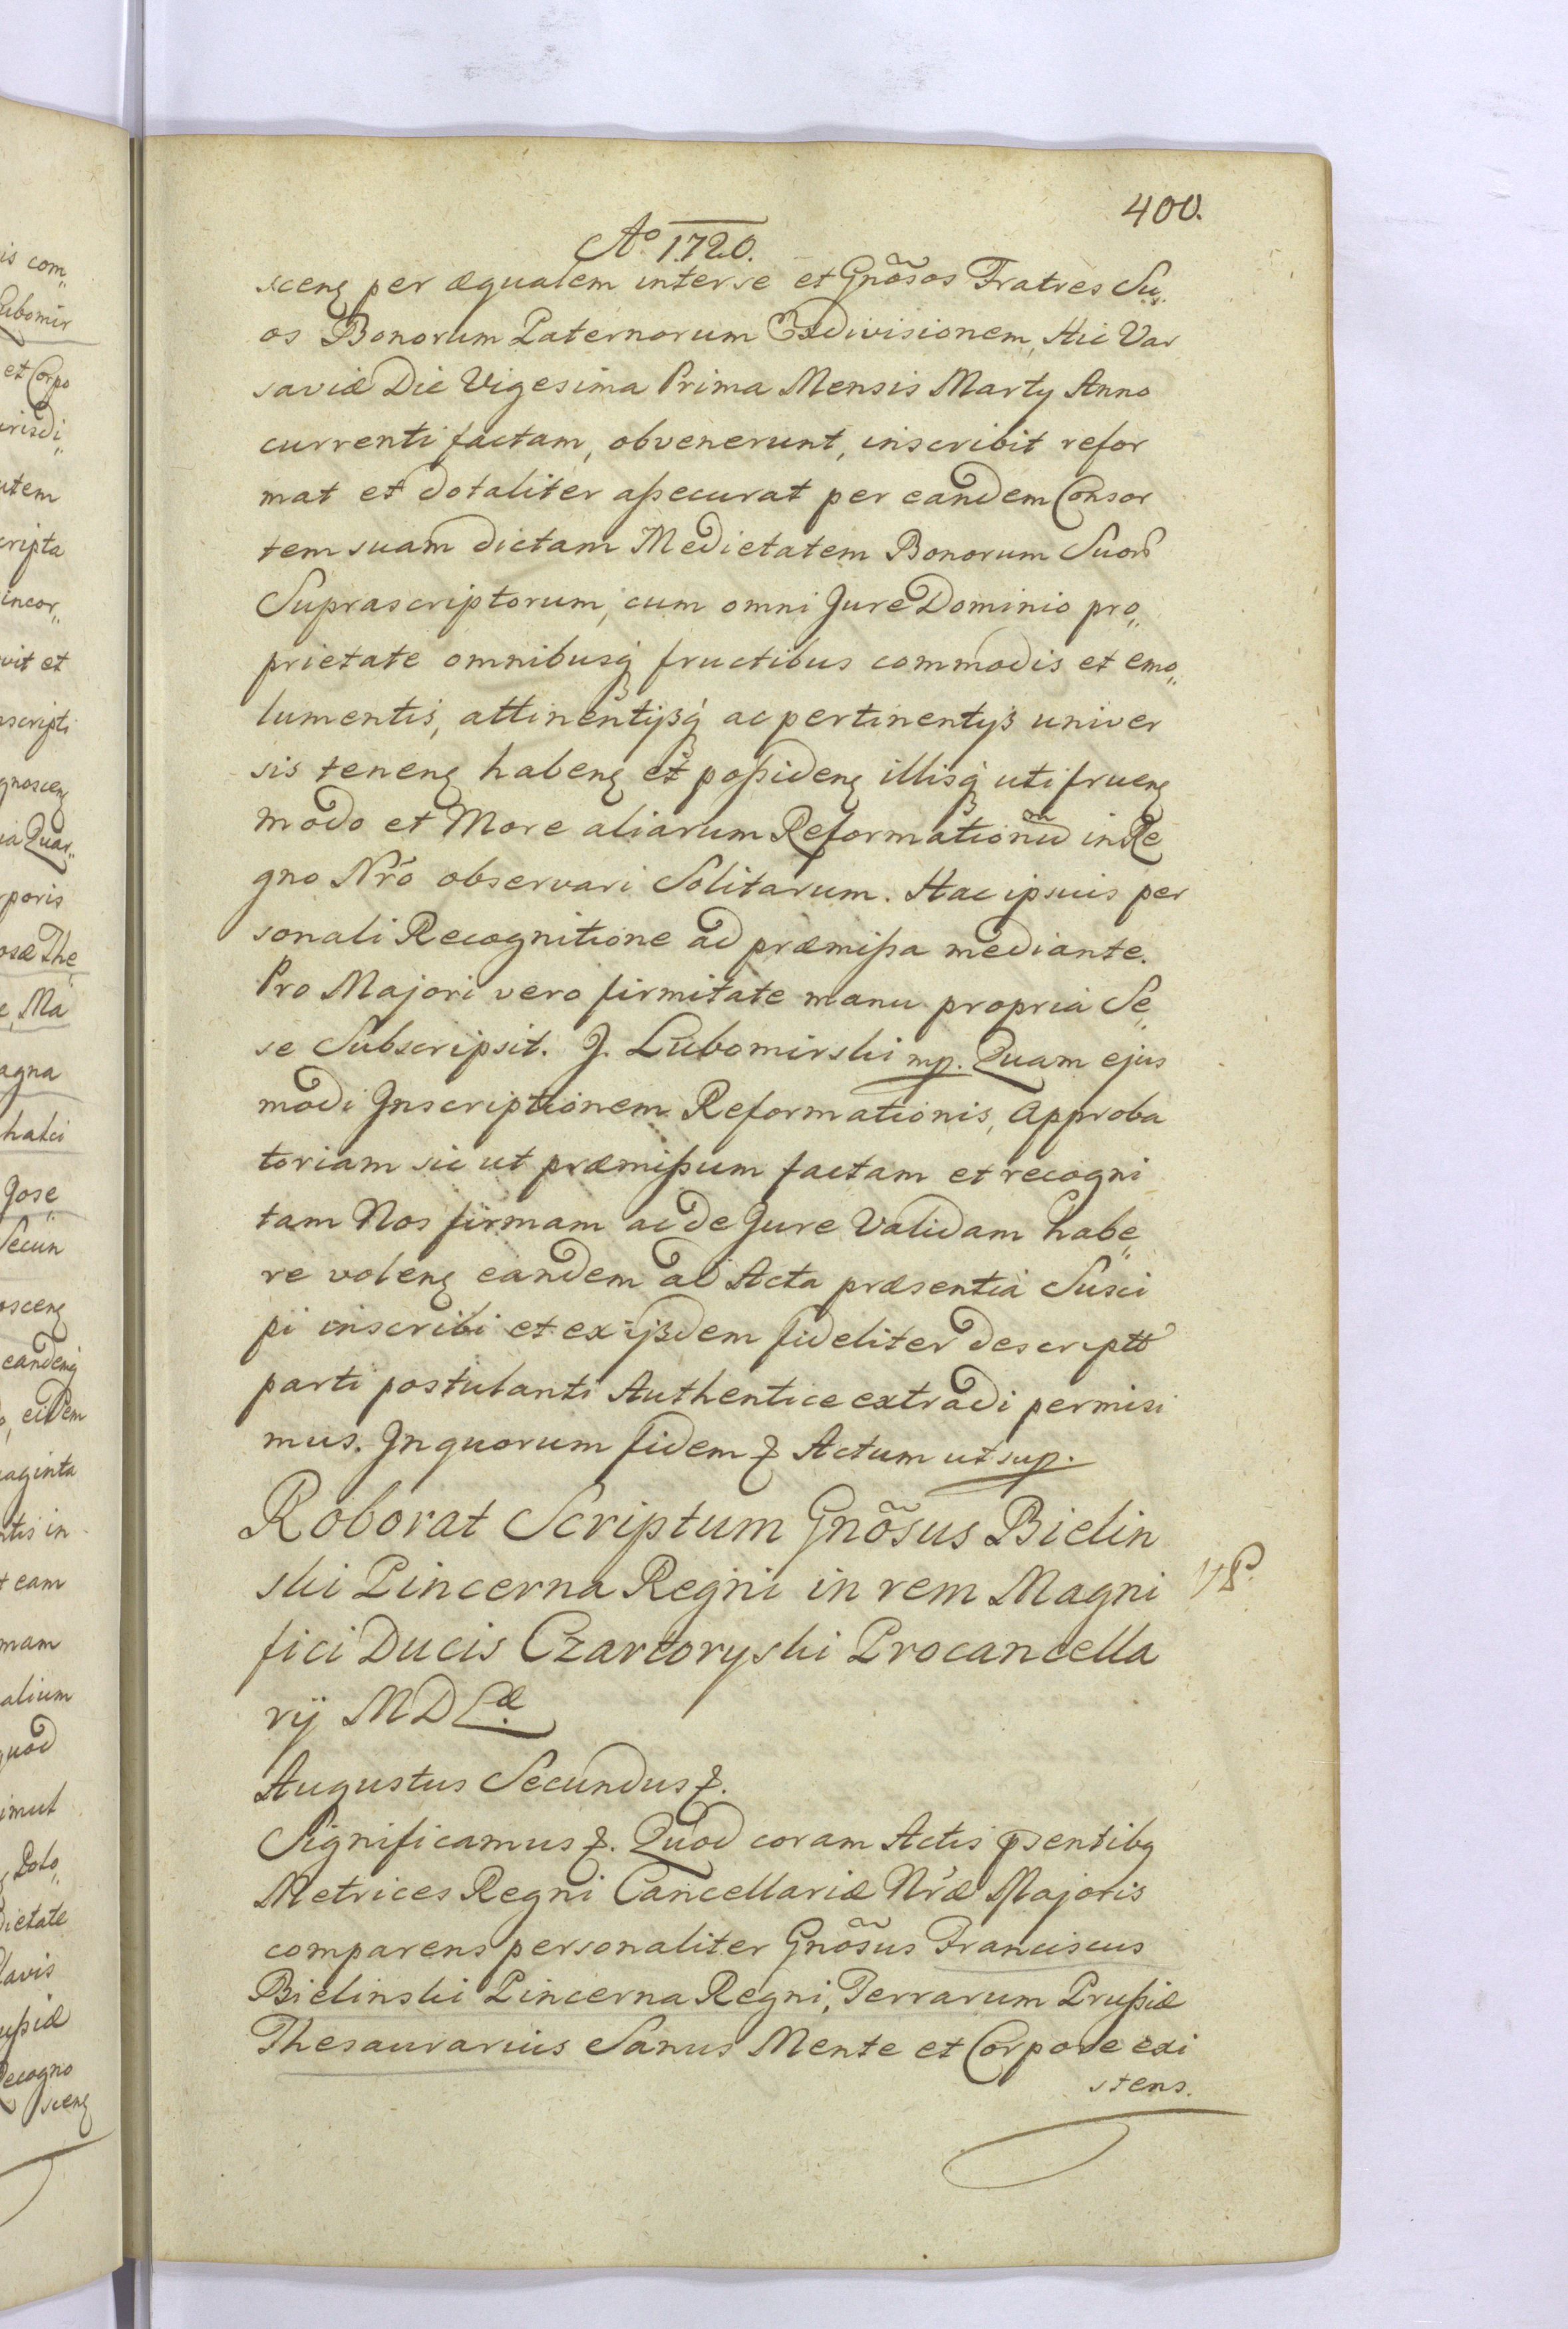 400.
Ao 1720.
sceng per æqualem inter se et Gnõsos Fratres Su„
os Bonorum Paternorum Exdivisionem, Hic Var
saviæ Die Vigesima Prima Mensis Marty Anno
currenti factam, obvenerunt, inscribit refor
mat et dotaliter aßecurat per eandem Consor
tem suam dictam Medietatem Bonorum Suorũ
Suprascriptorum, cum omni Jure Dominio pro„
prietate omnibusq́ fructibus commodis et emo„
lumentis, attinentijsq́ ac pertinentijs univer
sis teneng habeng et poßideng illisq́ uti frueng
modo et More aliarum Reformationũ in Re
gno Nr̃o observari Solitarum. Hac ipsius per
sonali Recognitione ad præmißa mediante.
Pro Majori vero firmitate manu propria Se„
se Subscripsit. J. Lubomirski mp. Quam ejus
modi Inscriptionem Reformationis, Approba
toriam sic ut præmißum factam et recogni
tam Nos firmam ac de Jure Validam habe„
re voleng eandem ad Acta præsentia Susci
pi inscribi et ex ijsdem fideliter descriptũ
parti postulanti Authentice extradi permisi
mus. In quorum fidem &. Actum ut sup.
Roborat Scriptum Gnõsus Bielin
ski Pincerna Regni in rem Magni
fici Ducis Czartoryski Procancella
rij M D Læ.
Augustus Secundus &.
Significamus &. Quod coram Actis p̃sentibg
Metrices Regni Cancellariæ Nr̃æ Majoris
comparens personaliter Gnõsus Franciscus
Bielinski Pincerna Regni, Terrarum Prußiæ
Thesaurarius Sanus Mente et Corpore exi
stens.